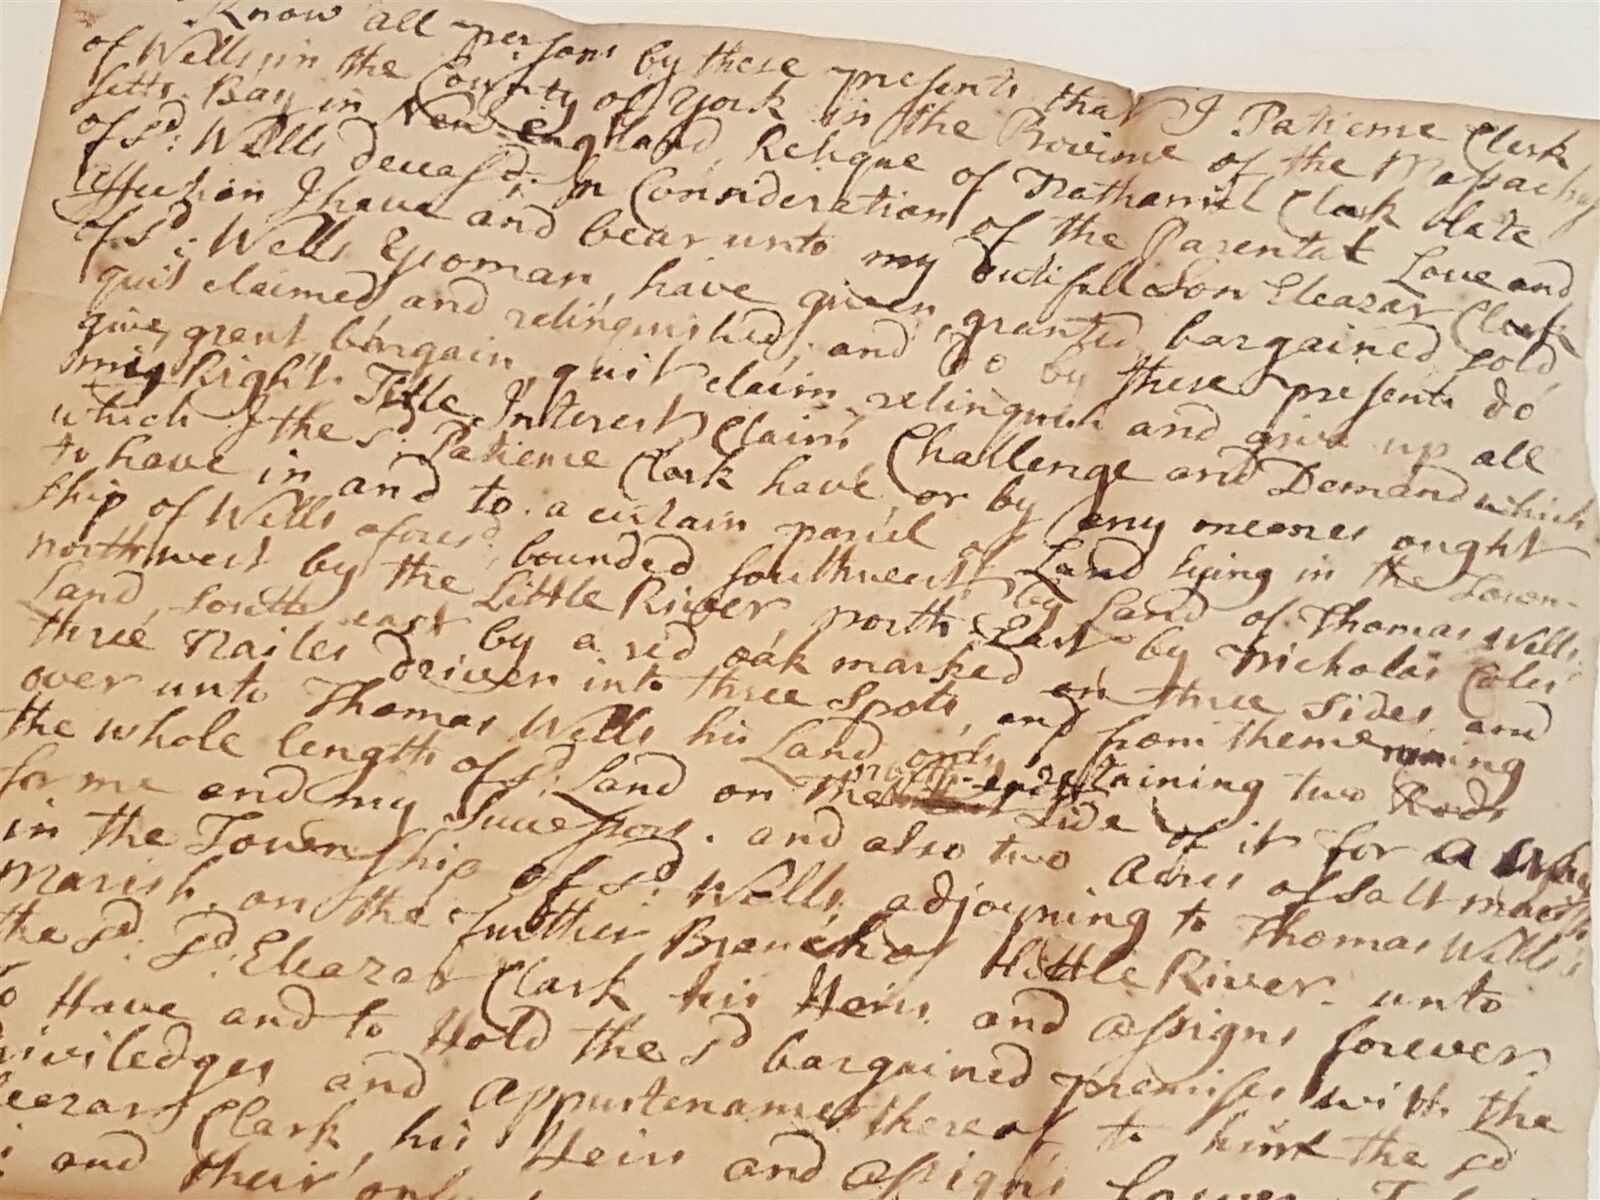 Know all persons by these presents that I Patience Clark
of Wells in the County of York in the Province of the Massachu
setts Bay in New England, Relique of Nathaniel Clark late
of Sd: Wells deceasd: In Consideration of the Parental Love and
affection I have and bear unto my dutifull Son Eleazar Clark
of Sd: Wells Yeoman, have given, granted, bargained sold
quit claimed and relinquished, and do by these presents do
give, grant, bargain, quit claim, relinquish and give up all
my Right Title Interest Claim Challenge and Demand which
which I the sd: Patience Clark have, or by any meenes ought
to have in and to a certain parcel of Land lying in the Town-
ship of Wells aforesd: bounded southwest by Land of Thomas Wells
northwest by the Little River north East by Nicholas Coles
Land, South east by a red oak marked on three sides and
three Nailes driven into three spots, and from theme runing
over unto Thomas Wells his Land only retaining two Rods
the whole length of sd: Land on the side of it for a
for me and my Successors. and also two acres of salt marsh
in the Township of Sd: Wells, adjoyning to Thomas Wells's
Marish. on the further Branch of Little River. unto
the sd: sd: Eleazar Clark his Heirs and assigns forever.
Have and to Hold the sd bargained premises with the
priviledges and appurtenances thereof to him the sd
Eleazar Clark, his Heirs and assigns forever
and their only